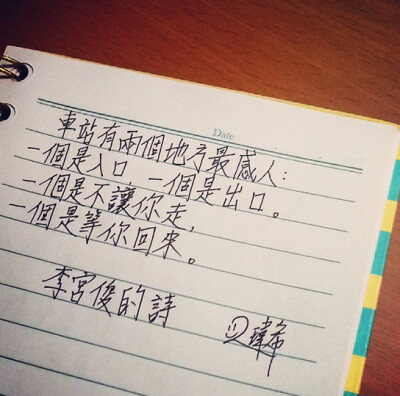 Date
車站有兩個地方最感人：
一個是入口 一個是出口。
一個是不讓你走，
一個是等你回來。
李宮俊的詩